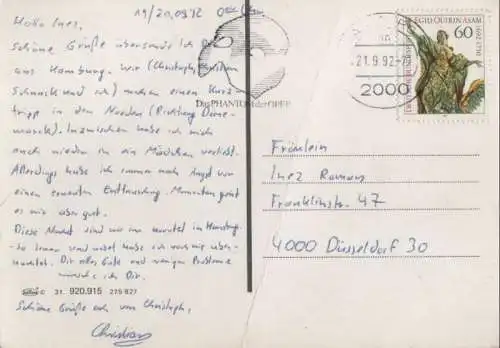 19/20.09.92
Hallo Inez,
schöne Grüße übersende ich Dir
aus Hamburg. Wir (Christoph,
und ich) machen einen Kurz
tripp in den Norden (Richtung Däne-
mark). Inzwischen habe ich mich
auch wieder in ein Mädchen verliebt.
Allerdings habe ich immer noch Angst vor
einer erneuten Enttäuschung. Momentan geht
es mir aber gut.
Diese Nacht sind wir in Hamburg
und habe ich noch nie über-
nachtet. Dir alles Gute und wenige Probleme
wünsche ich Dir.
31. 920.915 275 827
Schöne Grüße auch von Christoph,
Christian
Das PHANTOM der OPER
21.9.92
2000
EGID QUIRIN ASAM
60
DEUTSCHE BUNDESPOST
1692
1750
Fräulein
Inez Romans
Franklinstr. 47
4000 Düsseldorf 30